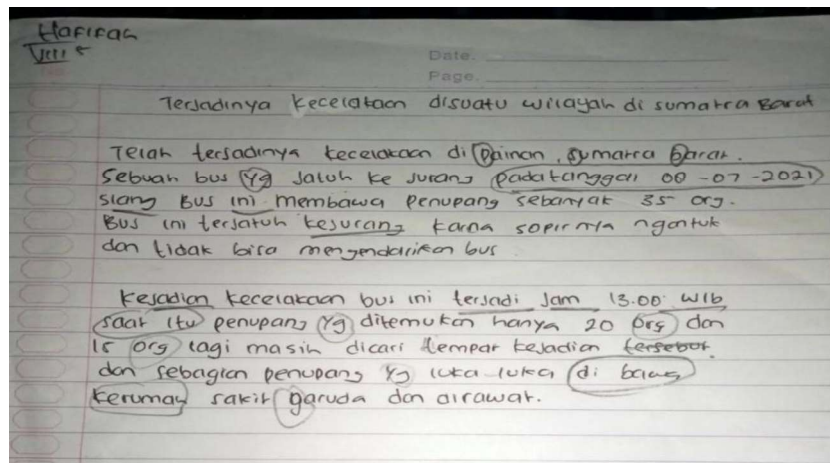 Hafifah
VIII 5
Date.
Page.
Terjadinya kecelakaan disuatu wilayah di sumatra Barat
Telah terjadinya kecelakaan di Painan, Sumatra Barat.
Sebuah bus yg jatuh ke jurang pada tanggal 00-07-2021
siang Bus ini membawa penupang sebanyak 35 org.
Bus ini terjatuh kejurang karna sopirnya ngantuk
dan tidak bisa mengendarikan bus
Kejadian kecelakaan bus ini terjadi jam 13.00 wib
saat itu penupang yg ditemukan hanya 20 org dan
15 org lagi masih dicari tempat kejadian tersebut.
dan sebagian penupang yg luka luka di bawa
kerumah sakit garuda dan dirawat.